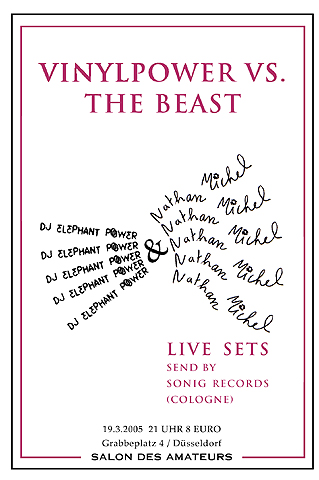 VINYLPOWER VS.
THE BEAST
DJ ELEPHANT POWER
DJ ELEPHANT POWER
DJ ELEPHANT POWER
DJ ELEPHANT POWER
DJ ELEPHANT POWER
&
Nathan Michel
Nathan Michel
Nathan Michel
Nathan Michel
Nathan Michel
LIVE SETS
SEND BY
SONIG RECORDS
(COLOGNE)
19.3.2005 21 UHR 8 EURO
Grabbeplatz 4 / Düsseldorf
SALON DES AMATEURS